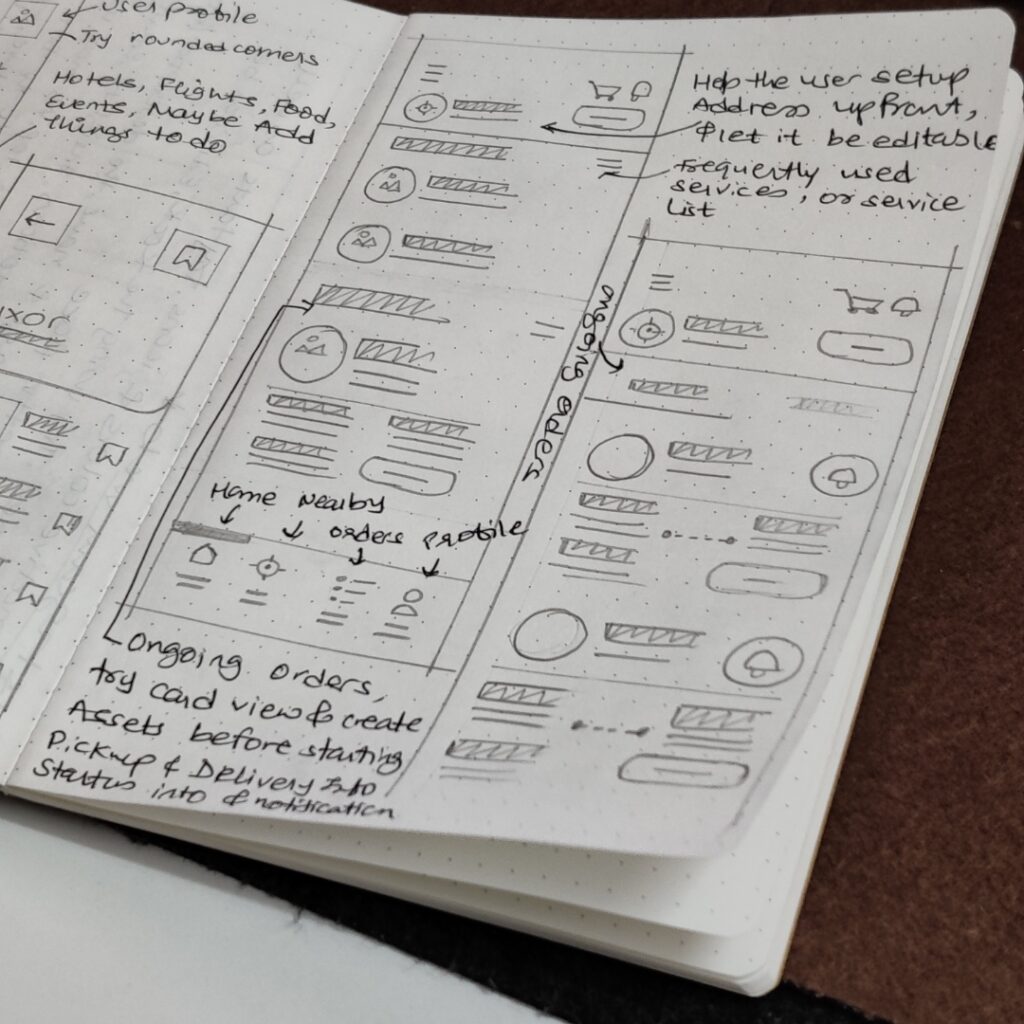 User profile
Try rounded corners
Hotels, Flights, Food,
Events, Maybe Add
things to do
uxor
Help the user setup
Address upfront,
& let it be editable
Frequently used
services, or service
List
ongoing orders
Home Nearby
orders profile
Ongoing orders,
try card view & create
Assets before starting
Pickup & Delivery Info
Status info & notification